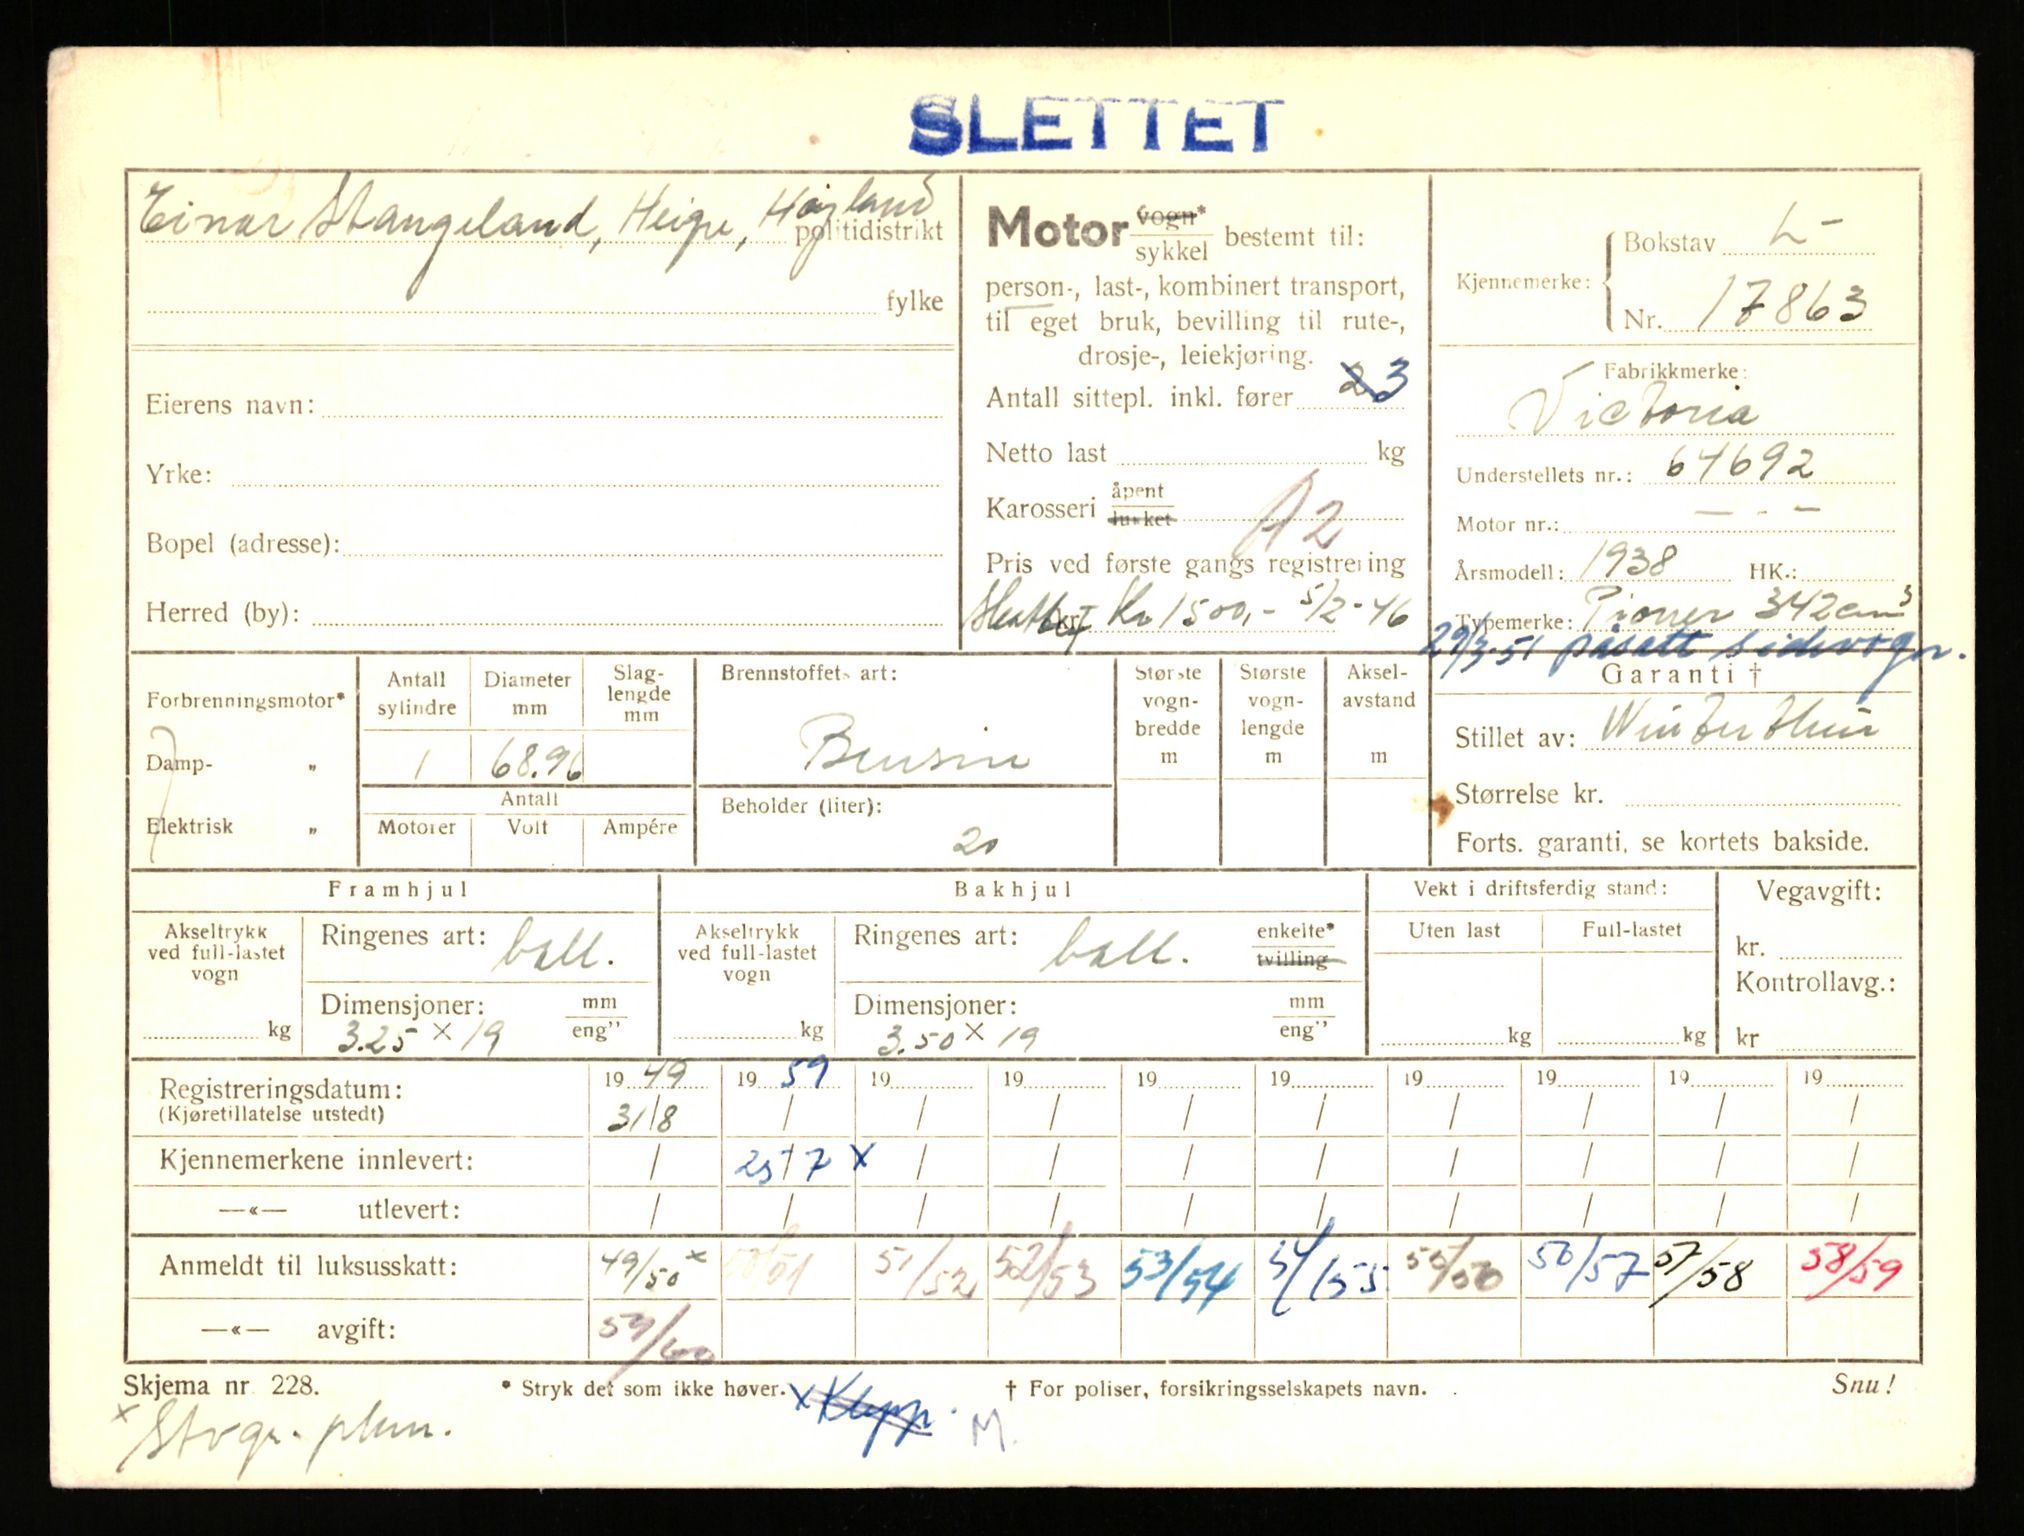 SLETTET
Einar Stangeland, Heigre, Høyland politidistrikt
fylke
Eierens navn:
Yrke:
Bopel (adresse):
Herred (by):
Motor vogn* / sykkel bestemt til:
person-, last-, kombinert transport,
til eget bruk, bevilling til rute-,
drosje-, leiekjøring.
Antall sittepl. inkl. fører 2 3
Netto last kg
Karosseri åpent / lukket A2
Pris ved første gangs registrering
kr. Kr 1500,- 5/2-46
Kjennemerke: Bokstav L-
Nr. 17863
Fabrikkmerke:
Victoria
Understellets nr.: 64692
Motor nr.: — . —
Årsmodell: 1938 HK.:
Typemerke: Pioner 342cm³
29/3-51 påsatt sidevogn.
Garanti †
Stillet av: Winterthur
Størrelse kr.
Forts. garanti, se kortets bakside.
Forbrenningsmotor*
Damp- „
Elektrisk „
Antall sylindre
Diameter mm
Slaglengde mm
1 68.96
Antall
Motorer Volt Ampére
Brennstoffets art:
Bensin
Beholder (liter):
20
Største vognbredde m
Største vognlengde m
Akselavstand m
Framhjul
Akseltrykk ved full-lastet vogn
kg
Ringenes art: ball.
Dimensjoner: mm / eng"
3.25 x 19
Bakhjul
Akseltrykk ved full-lastet vogn
kg
Ringenes art: ball. enkelte* / tvilling
Dimensjoner: mm / eng"
3.50 x 19
Vekt i driftsferdig stand:
Uten last Full-lastet
kg kg
Vegavgift:
kr.
Kontrollavg.:
kr
Registreringsdatum: 19 49 19 59 19 19 19 19 19 19 19 19
(Kjøretillatelse utstedt) 31/8 / / / / / / / / /
Kjennemerkene innlevert: / 25/7 x / / / / / / / /
—«— utlevert: / / / / / / / / / /
Anmeldt til luksusskatt: 49/50 x 50/51 51/52 52/53 53/54 54/55 55/56 56/57 57/58 58/59
—«— avgift: 59/60
Skjema nr. 228.
* Stryk det som ikke høver.
† For poliser, forsikringsselskapets navn.
Snu!
x Klepp. M.
x Stvgn. plum.